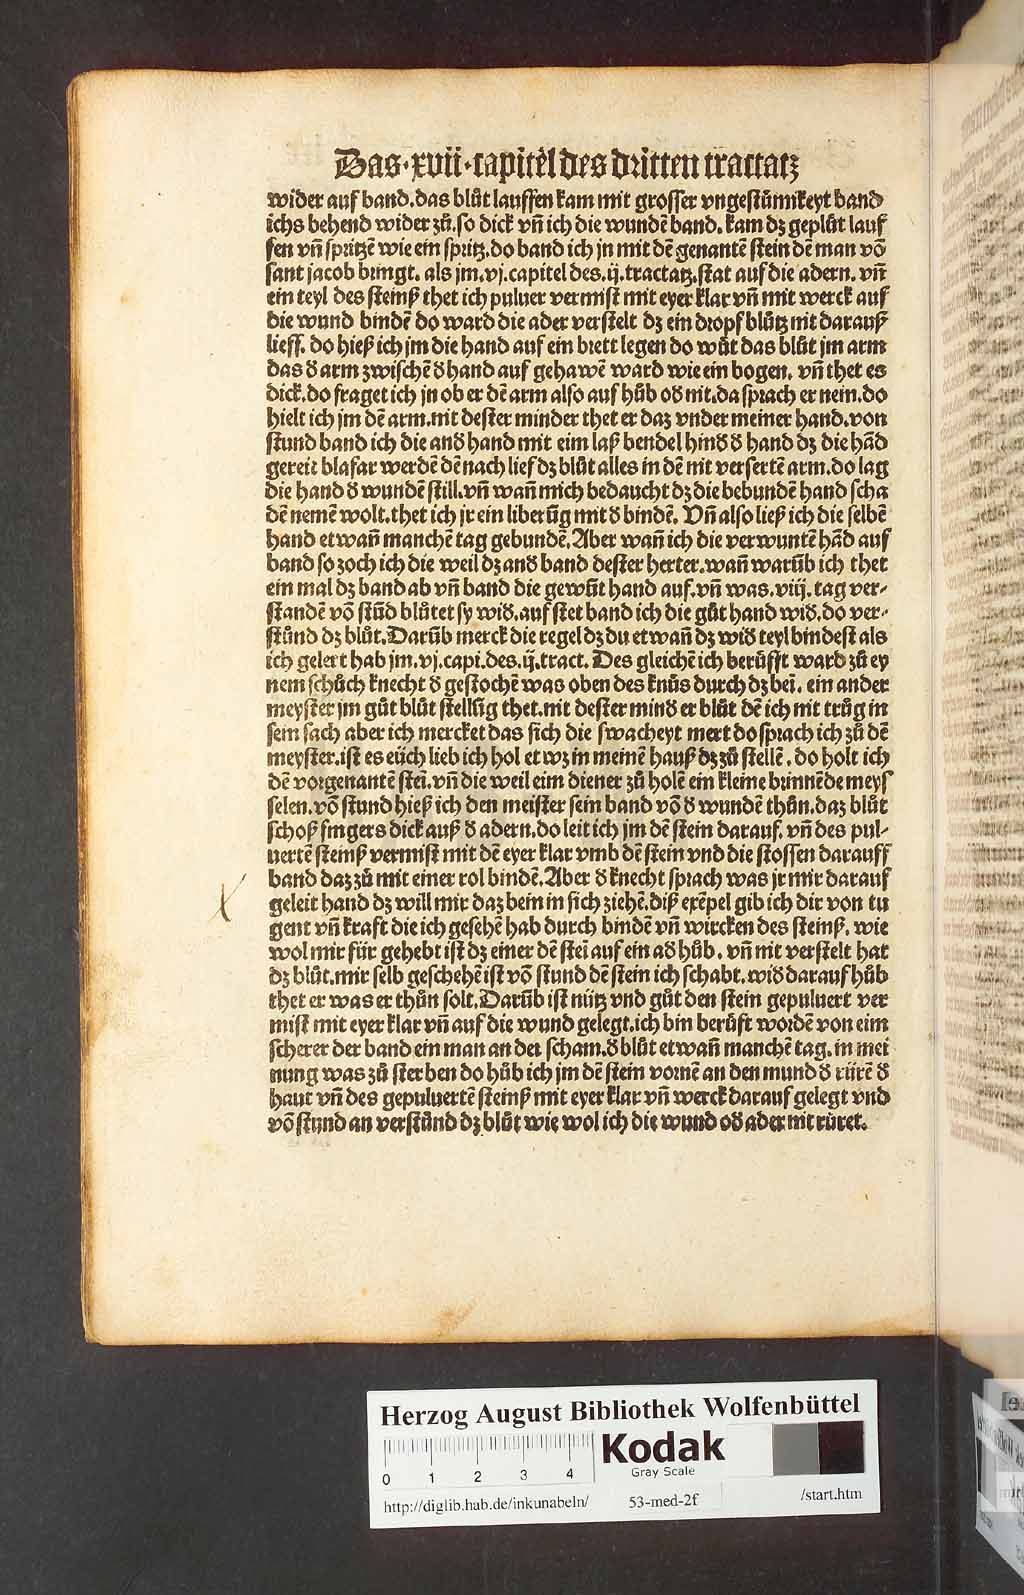 Das·xvii·capitel des dritten tractatz
wider auf band. das blůt lauffen kam mit grosser vngestůmikeyt band
ichs behend wider zů. so dick vñ ich die wundẽ band. kam dz geplůt lauf
fen vñ spritzẽ wie ein spritz. do band ich jn mit dẽ genantẽ stein dẽ man võ
sant jacob bringt. als jm. vj. capitel des. ij. tractatz. stat auf die adern. vñ
ein teyl des steinß thet ich puluer vermist mit eyer klar vñ mit werck auf
die wund bindẽ do ward die ader verstelt dz ein dropf blůtz nit darauß
lieff. do hieß ich jm die hand auf ein brett legen do wůt das blůt jm arm
das ð arm zwischẽ ð hand auf gehawẽ ward wie ein bogen. vñ thet es
dick. do fraget ich jn ob er dẽ arm also auf hůb oð nit. da sprach er nein. do
hielt ich jm dẽ arm. nit dester minder thet er daz vnder meiner hand. von
stund band ich die anð hand mit eim laß bendel hinð ð hand dz die hãd
gereit blafar werdẽ dẽ nach lief dz blůt alles in dẽ nit versertẽ arm. do lag
die hand ð wundẽ still. vñ wañ mich bedaucht dz die bebundẽ hand scha
dẽ nemẽ wolt. thet ich jr ein liberũg mit ð bindẽ. Vñ also ließ ich die selbẽ
hand etwañ manchẽ tag gebundẽ. Aber wañ ich die verwuntẽ hãd auf
band so zoch ich die weil dz anð band dester herter. wañ warũb ich thet
ein mal dz band ab vñ band die gewũt hand auf. vñ was. viij. tag ver-
standẽ võ stũd blůtet sy wið. auf stet band ich die gůt hand wið. do ver-
stůnd dz blůt. Darũb merck die regel dz du etwañ dz wið teyl bindest als
ich gelert hab jm. vj. capi. des. ij. tract. Des gleichẽ ich berůfft ward zů ey
nem schůch knecht ð gestochẽ was oben des knůs durch dz beĩ. ein ander
meyster jm gůt blůt stellũg thet. nit dester minð er blůt dẽ ich nit trůg in
sein sach aber ich mercket das sich die swacheyt mert do sprach ich zů dẽ
meyster. ist es eůch lieb ich hol etwz in meinẽ hauß dz zů stellẽ. do holt ich
dẽ vorgenantẽ steĩ. vñ die weil eim diener zů holẽ ein kleine brinnẽde meys
selen. võ stund hieß ich den meister sein band võ ð wundẽ thůn. daz blůt
schoß fingers dick auß ð adern. do leit ich jm dẽ stein darauf. vñ des pul-
uertẽ steinß vermist mit dẽ eyer klar vmb dẽ stein vnd die stossen darauff
band daz zů mit einer rol bindẽ. Aber ð knecht sprach was jr mir darauf
geleit hand dz will mir daz bein in sich ziehẽ. diß exẽpel gib ich dir von tu
gent vñ kraft die ich gesehẽ hab durch bindẽ vñ wircken des steinß. wie
wol mir für gehebt ist dz einer dẽ steĩ auf ein að hůb. vñ nit verstelt hat
dz blůt. mir selb geschehẽ ist võ stund dẽ stein ich schabt. wið darauf hůb
thet er was er thůn solt. Darũb ist nütz vnd gůt den stein gepuluert ver
mist mit eyer klar vñ auf die wund gelegt. ich bin berůft wordẽ von eim
scherer der band ein man an der scham. ð blůt etwañ manchẽ tag. in mei
nung was zů sterben do hůb ich jm dẽ stein vornẽ an den mund ð rürẽ ð
haut vñ des gepuluertẽ steinß mit eyer klar vñ werck darauf gelegt vnd
võ stund an verstůnd dz blůt wie wol ich die wund oð ader nit rüret.
Herzog August Bibliothek Wolfenbüttel
0 1 2 3 4
Kodak
Gray Scale
http://diglib.hab.de/inkunabeln/ 53-med-2f /start.htm